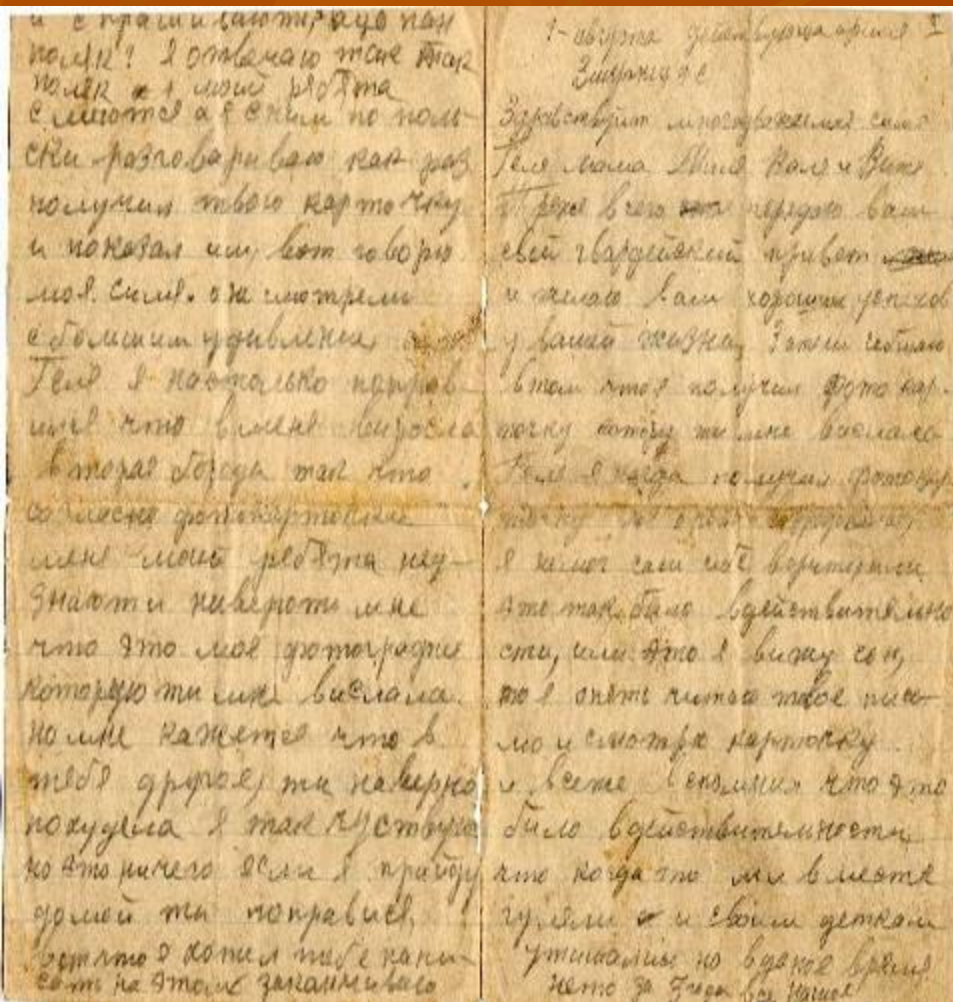 и спрашивают, пан
поляк? Я отвечаю так так
поляк и мои ребята
смеются а я с ним по поль-
ски разговариваю как раз
получил твою карточку
и показал им, вот говорю
моя симя. они смотрели
с большим удивление
Геля я настолько поправ-
ился что в меня виросла
вторая борода так что
согласно фотокарточки
меня мои ребята неу-
знают и неверют мне
что это моя фотография
которую ти мне вислала.
но мне кажется что в
тебя другое, ти наверно
похудела я так чуствую
но это ничего если я прийду
домой ти поправися,
вот что я хотел тебе напи-
сать на этом заканчиваю
1-августа действующая армия
Здравствуйте многоуважемая симя
Геля мама Миля Валя и Витя
Прежд всего передаю вам
свой гвардейский привет
и желаю вам хороших успехов
у вашей жизни,
в том что я получил фото кар-
точку котору ти мне вислала
Геля я когда получил фотокар
точку
я немог сам
это так било вдействительно
сти, или это я вижу сон,
но я опять читаю твое пись-
мо и смотрю карточку
и всеже вспомнил что это
било вдействительности
что когда то ми вместе
гуляли и своим деткам
утишались но вданое время
нето за 3 года все